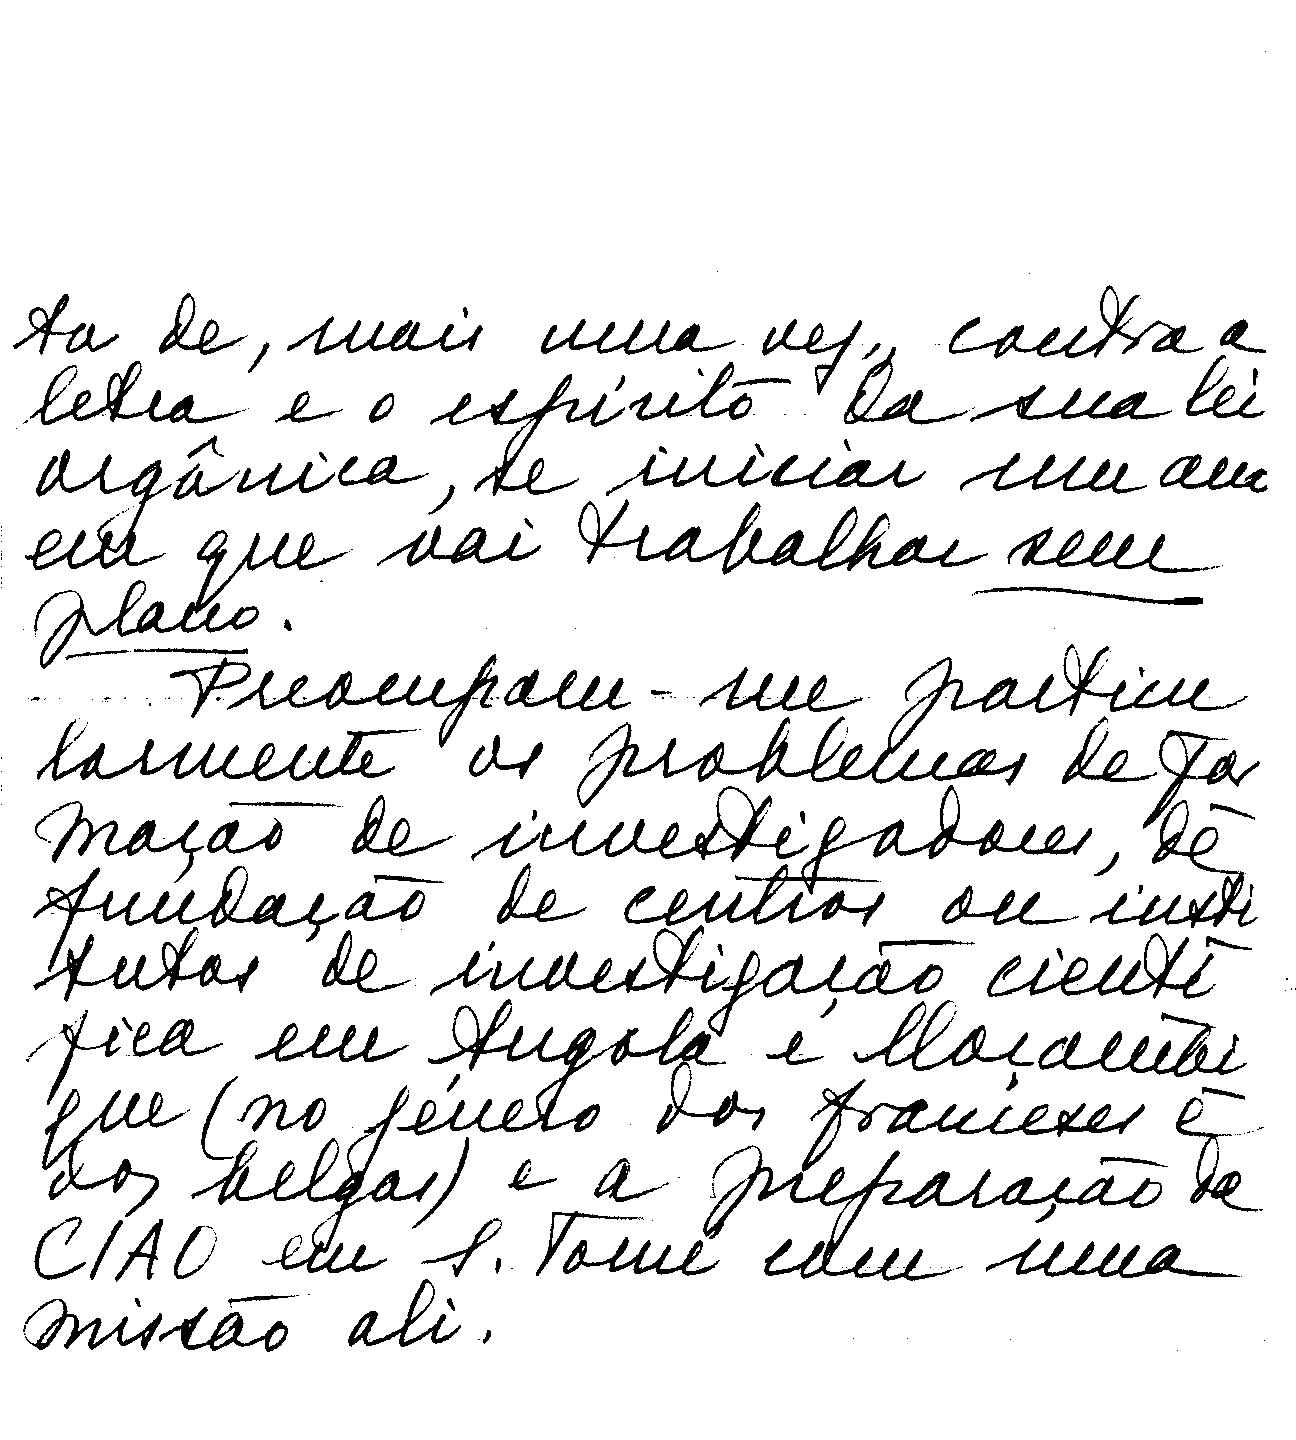 ta de, mais uma vez, contra a
letra e o espírito da sua lei
orgânica, se iniciar um ano
em que vai trabalhar sem
plano.
Preocupam-me particu
larmente os problemas de for
mação de investigadores, de
fundação de centros ou insti
tutos de investigação cientí
fica em Angola e Moçambi
que (no género dos franceses e
dos belgas) e a preparação da
CIAO em S. Tomé com uma
missão ali.